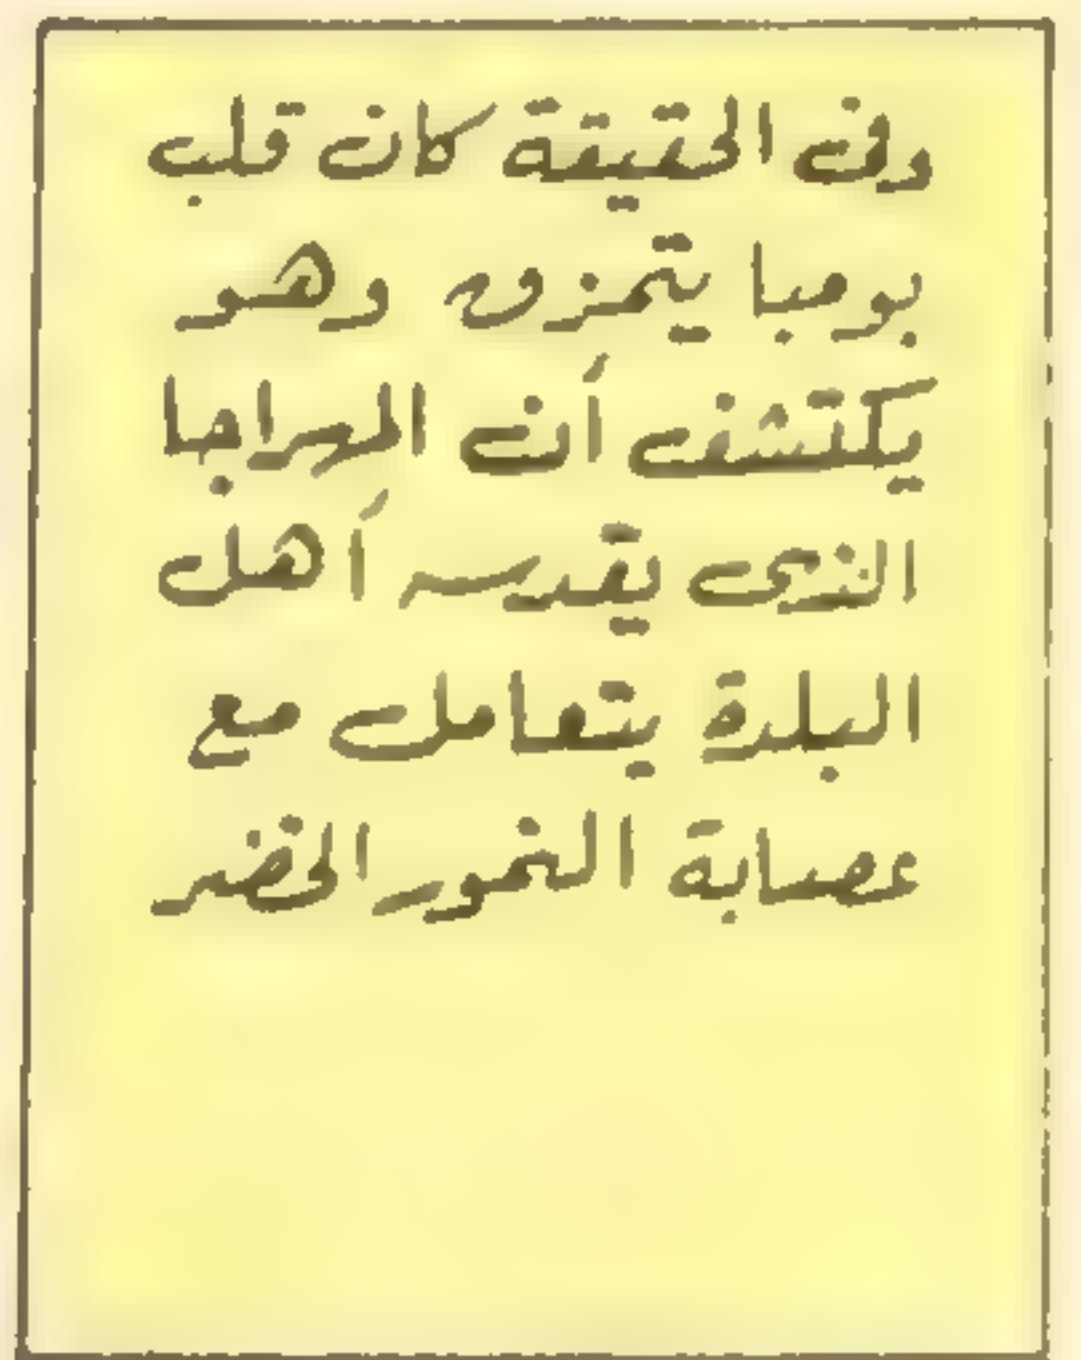 وفى الحقيقة كان قلب
بومبا يتمزق وهو
يكتشف أن المهراجا
الذى يقدسه أهل
البلدة يتعامل مع
عصابة النمور الخضر